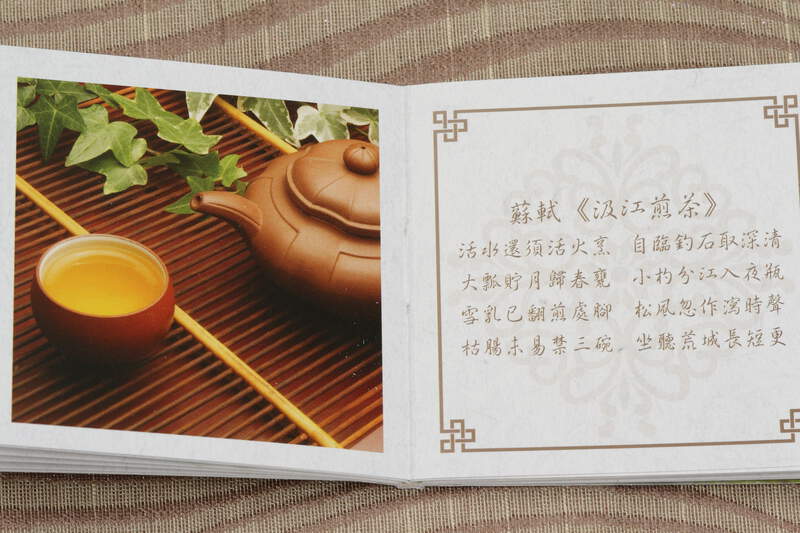 蘇軾《汲江煎茶》
活水還須活火烹 自臨釣石取深清
大瓢貯月歸春甕 小杓分江入夜瓶
雪乳已翻煎處腳 松風忽作瀉時聲
枯腸未易禁三碗 坐聽荒城長短更